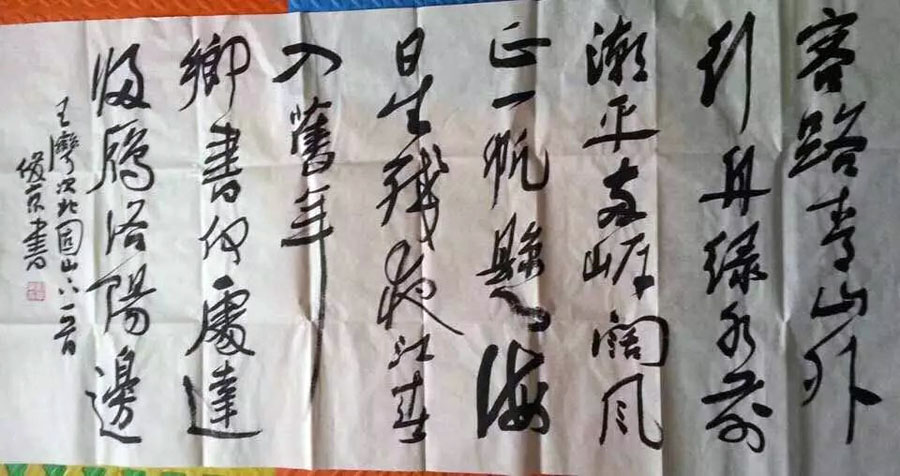 客路青山外
行舟绿水前
潮平两岸阔风
正一帆懸海
日生殘夜江春
入舊年
鄉書何處達
歸鴈洛陽邊
王灣次北固山下一首
俊京書